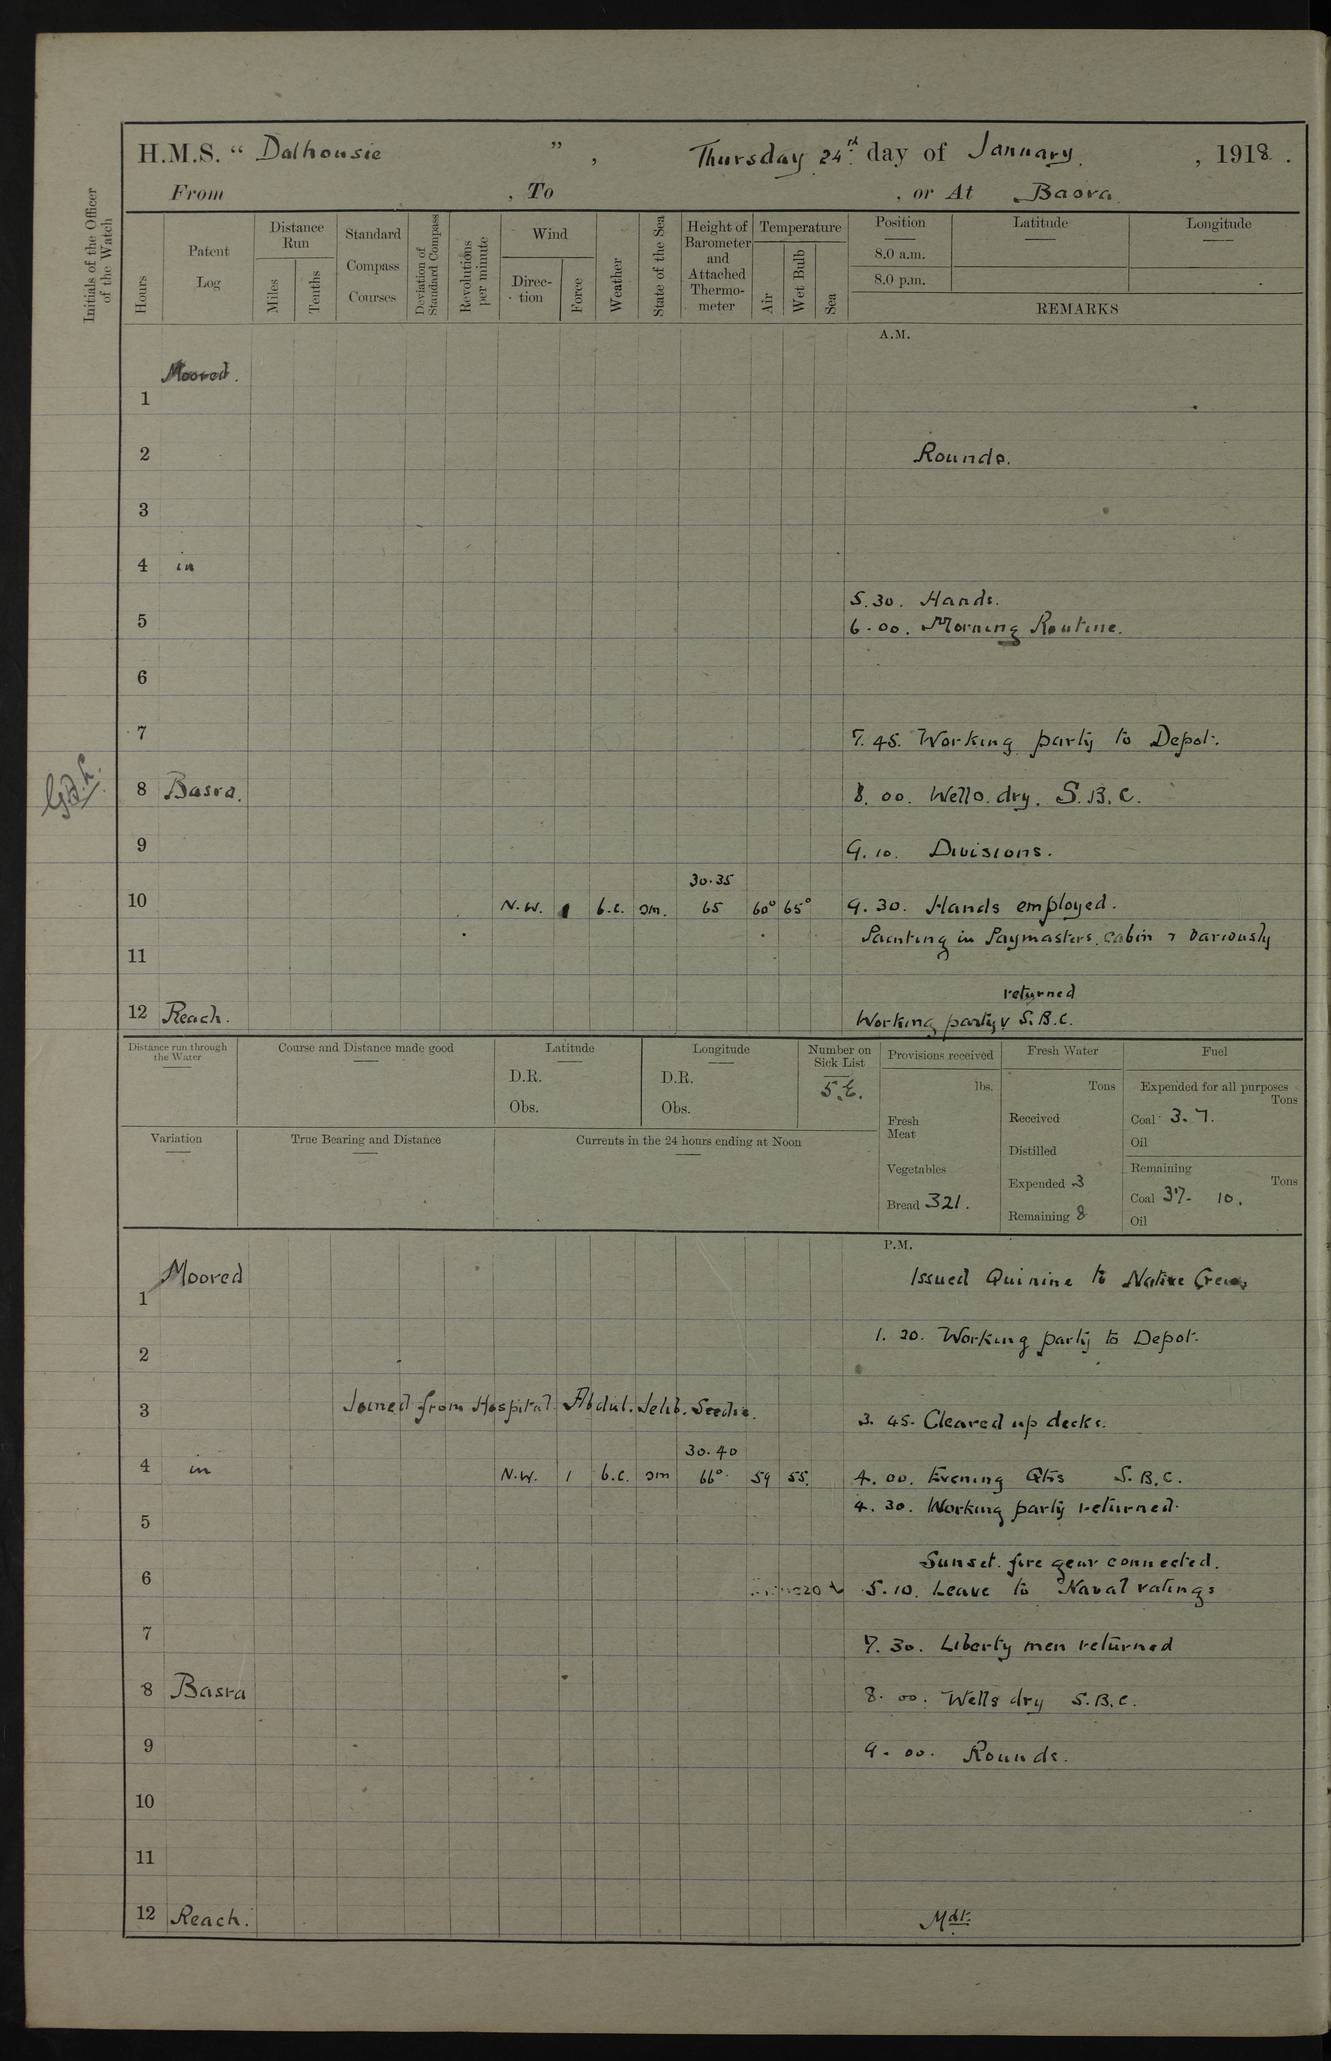 H.M.S. “ Dalhousie ” , Thursday 24th day of January , 1918 .
From , To , or At Basra
Initials of the Officer of the Watch
Hours
Patent Log
Distance Run
Miles
Tenths
Standard Compass Courses
Deviation of Standard Compass
Revolutions per minute
Wind
Direc-tion
Force
Weather
State of the Sea
Height of Barometer and Attached Thermo-meter
Temperature
Air
Wet Bulb
Sea
Position
Latitude
Longitude
8.0 a.m.
8.0 p.m.
REMARKS
A.M.
Moored.
1
2 Rounds.
3
4 in
5.30. Hands.
5
6.00. Morning Routine.
6
7 7.45. Working party to Depot.
8 Basra. 8.00. Wells dry. S.B.C.
9 9.10. Divisions.
30.35
10 N.W. 1 b.c. sm. 65 60° 65° 9.30. Hands employed.
Painting in Paymasters cabin & variously
11
returned
12 Reach. Working party v S.B.C.
Distance run through the Water
Course and Distance made good
Latitude
D.R.
Obs.
Longitude
D.R.
Obs.
Number on Sick List
5.E.
Provisions received
lbs.
Fresh Meat
Vegetables
Bread 321.
Fresh Water
Tons
Received
Distilled
Expended 3
Remaining 8
Fuel
Expended for all purposes
Tons
Coal 3.7.
Oil
Remaining
Tons
Coal 37- 10.
Oil
Variation
True Bearing and Distance
Currents in the 24 hours ending at Noon
P.M.
Moored Issued Quinine to Native Crew
1
1.20. Working party to Depot.
2
3 Joined from Hospital Abdul. Jelib. Seedie.
3.45. Cleared up decks.
30.40
4 in N.W. 1 b.c. sm 66° 59 55. 4.00. Evening Qtrs S.B.C.
4.30. Working party returned.
5
Sunset. fire gear connected.
6 5.10. Leave to Naval ratings
7 7.30. Liberty men returned
8 Basra 8.00. Wells dry S.B.C.
9 9.00. Rounds.
10
11
12 Reach. Mdt.